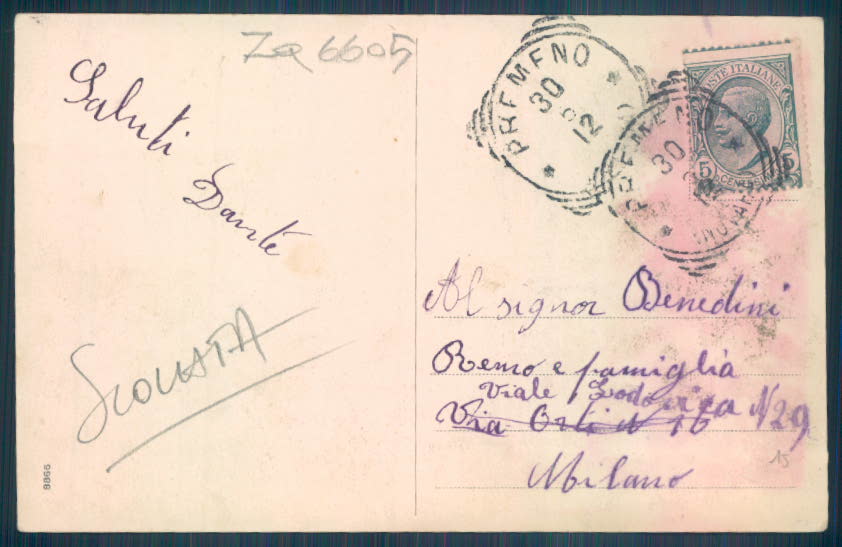 Za 6605
Saluti
Dante
SCOLLATA
8866
PREMENO
30
12
PREMENO
30
POSTE ITALIANE
5 CENT 5
Al signor Benedini
Remo e famiglia
Viale Lodovica N 29
Via Orti N 16
Milano
15